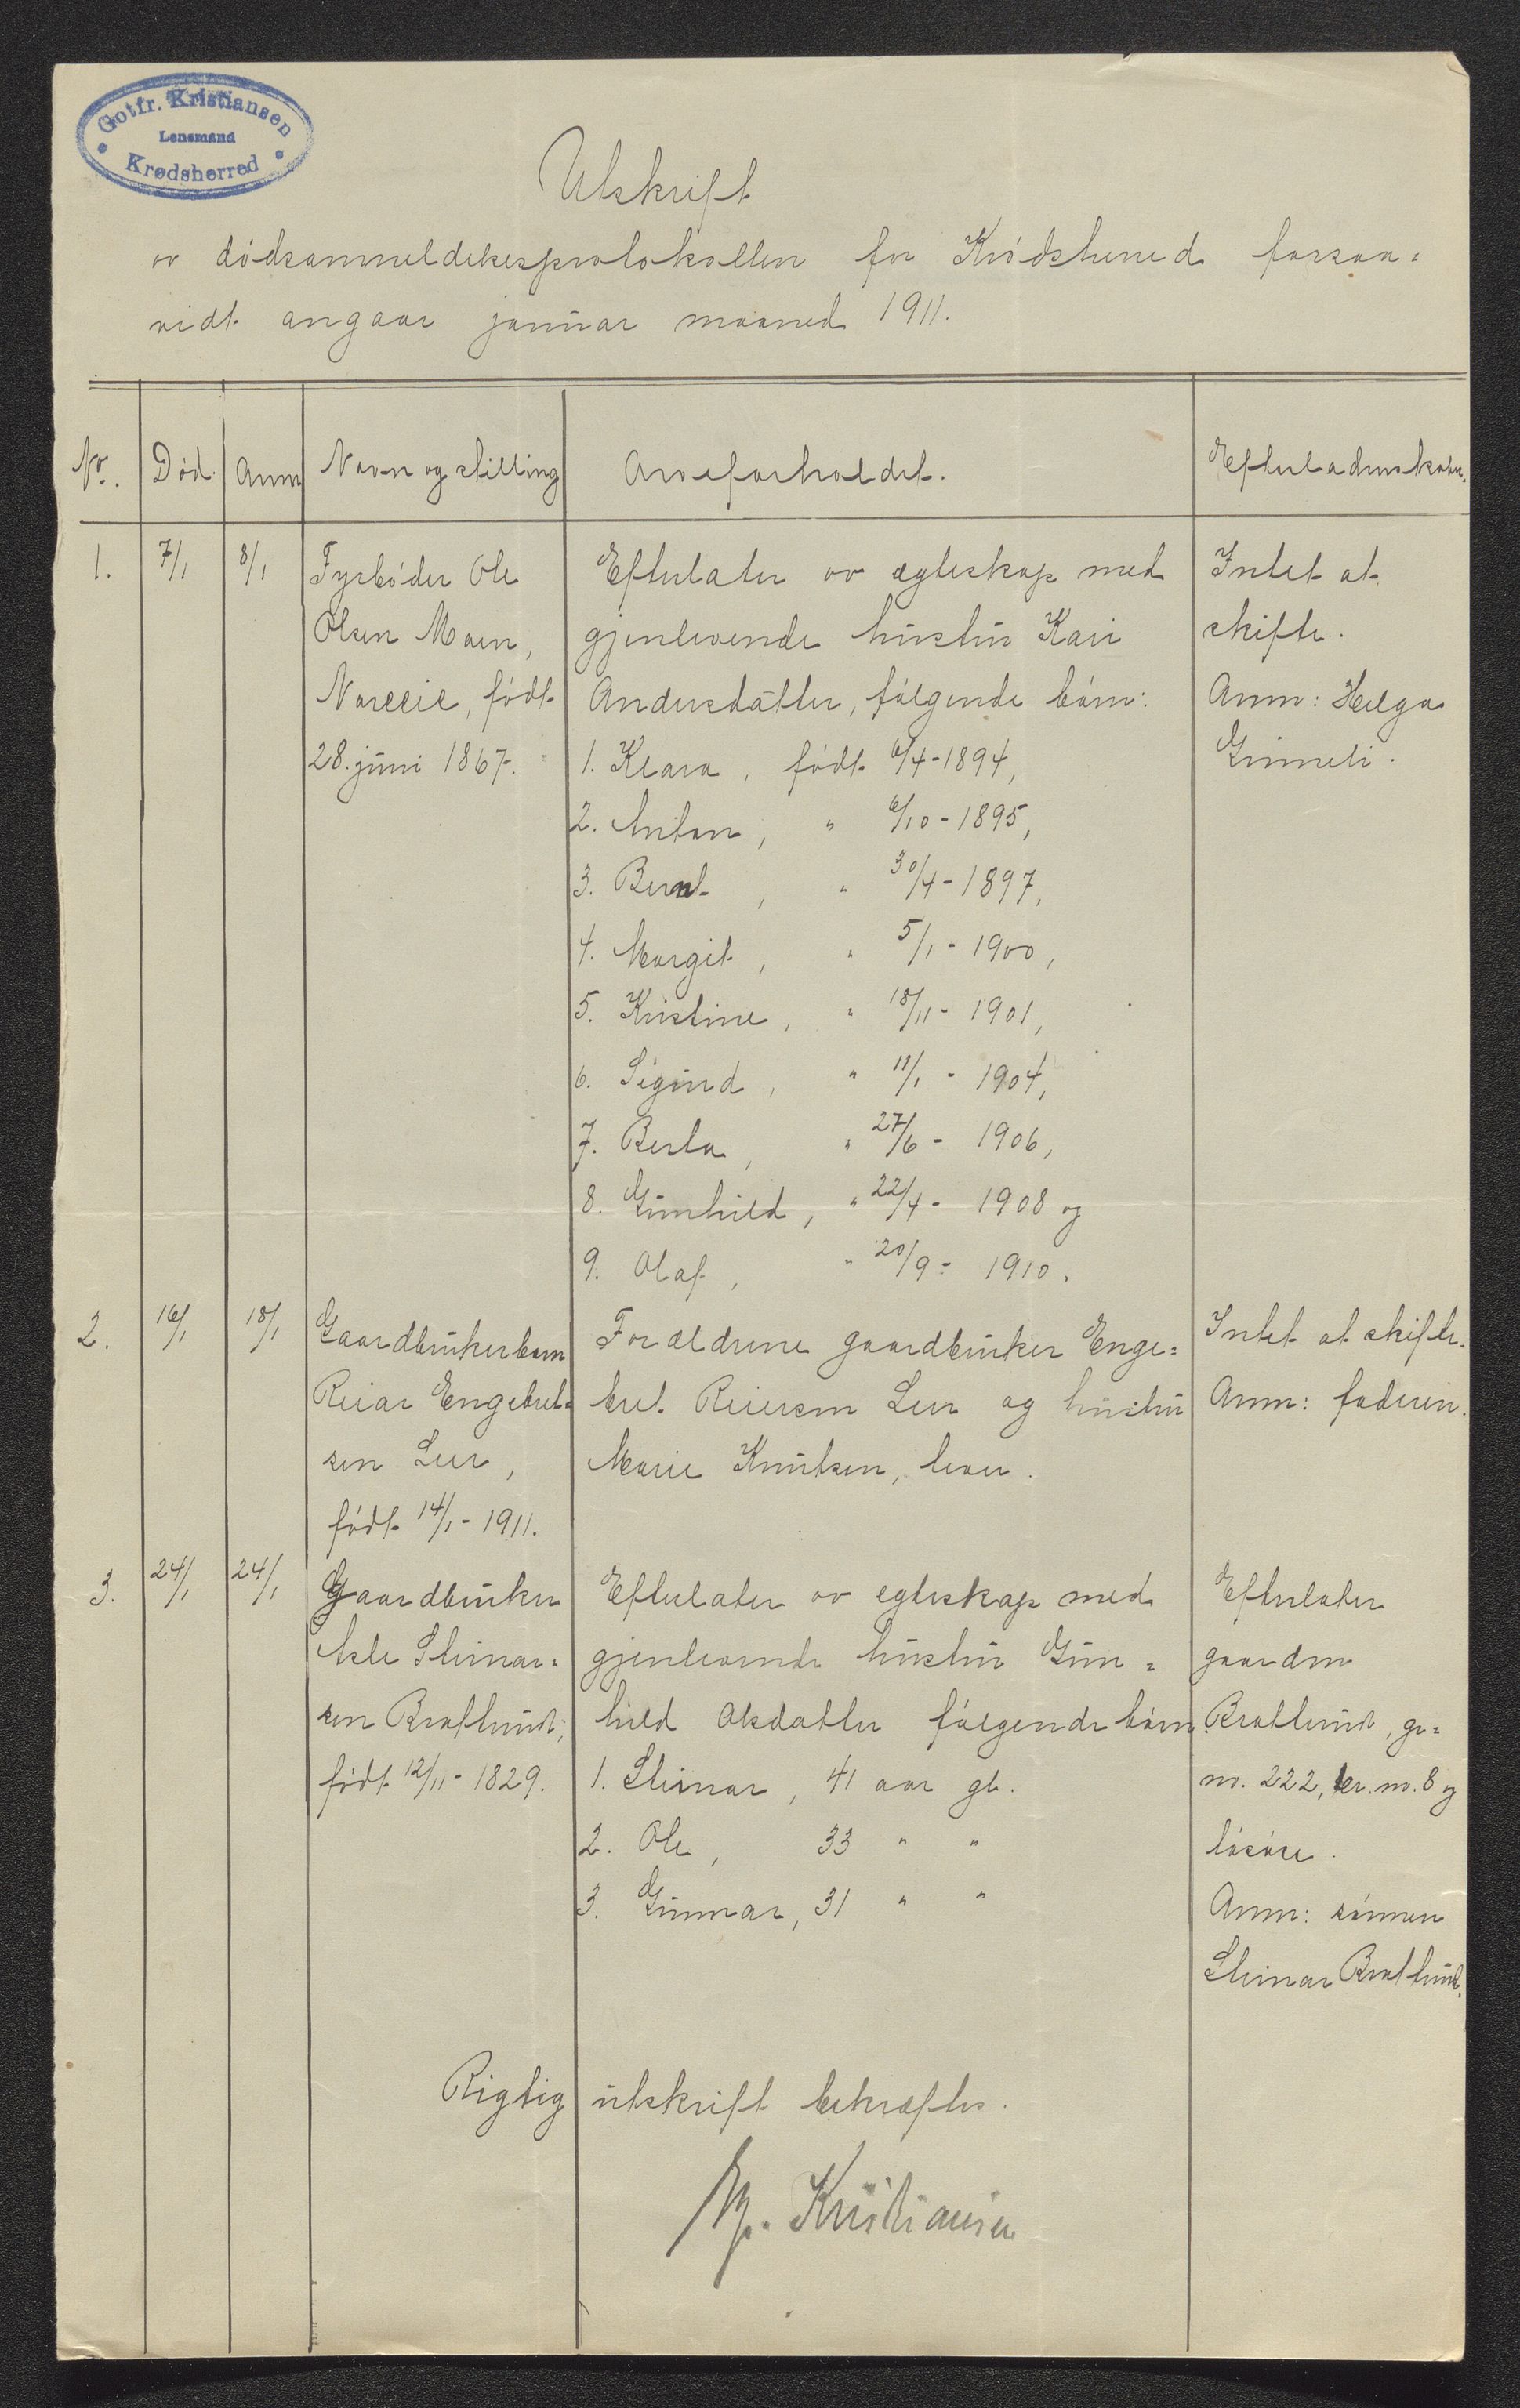 Gotfr. Kristiansen
Lensmand
Krødsherred
Utskrift
av dödsanmeldelsesprotokollen for Krödsherred forsaa=
vidt angaar januar maaned 1911.
No. Död. Anm Navn og stilling Arveforholdet. Efterladenskaber.
1. 7/1 8/1 Fyrböder Ole Efterlater av egteskap med Intet at
Olsen Moen, gjenlevende hustru Kari skifte.
födt Andersdatter, fölgende börn: Anm: Helga
28. juni 1867. 1. Klara, födt 6/4-1894,
2. Anton, " 6/10-1895,
3. Bernt, " 30/4-1897,
4. Margit, " 5/1-1900,
5. Kristine, " 18/11-1901,
6. Sigurd, " 11/1-1904,
7. Berta, " 27/6-1906,
8. Gunhild, " 22/4-1908 og
9. Olaf, " 20/9-1910.
2. 16/1 18/1 Gaardbrukerbarn Forældrene gaardbruker Enge= Intet at skifte.
Reiar Engebret= bret Reiersen Leer og hustru Anm: faderen.
sen Leer, Marie Knutsen, lever.
födt 14/1-1911.
3. 24/1 24/1 Gaardbruker Efterlater av egteskap med Efterlater
Asle Steinar= gjenlevende hustru Gun= gaarden
sen Bratlund, hild Olsdatter fölgende börn Bratlund, gr=
födt 12/11-1829. 1. Steinar, 41 aar gl. no. 222, br. no. 8 og
2. Ole, 33 " " lösöre.
3. Gunnar, 31 " " Anm: sönnen
Steinar Bratlund.
Rigtig utskrift bekræftes.
Kristiansen